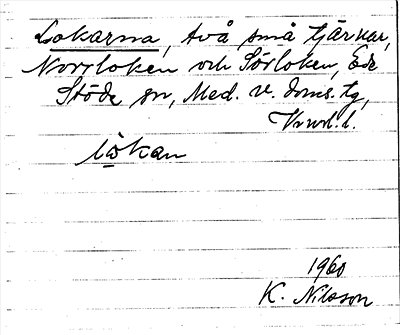 Lokarna, två små tjärnar,
Norrloken och Sörloken, Ede
Stöde sn, Med. v. doms. tg,
l.
lo̱kan
1960
K. Nilsson